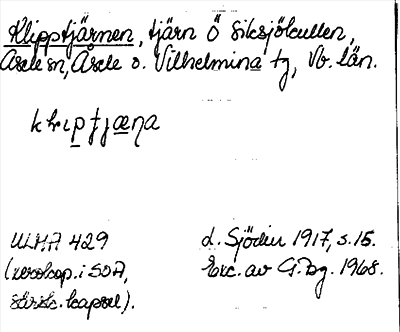 Klipptjärnen, tjärn Ö Siksjökullen,
Åsele sn, Åsele o. Vilhelmina tg, Vb. län.
ULMA 429
(xerokop. i SOA,
särsk. kapsel).
d. Sjödin 1917, s. 15.
Exc. av G. Bg. 1968.